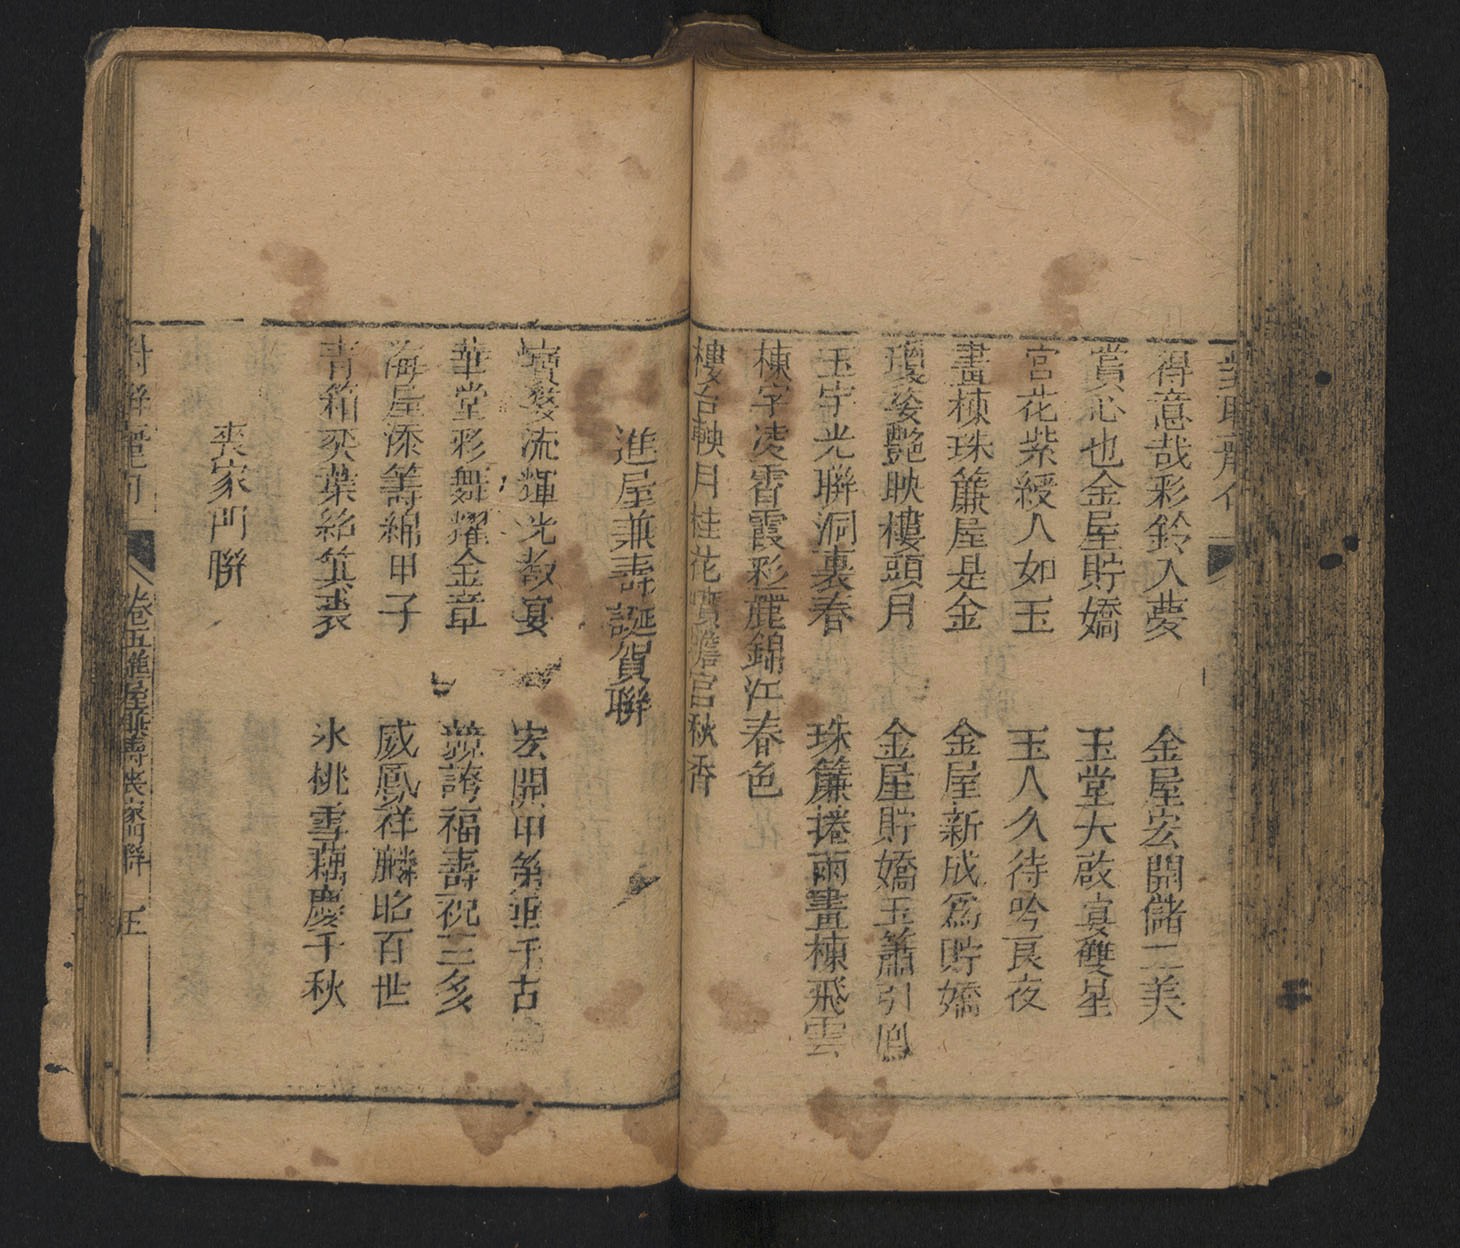 得意哉彩鈴入夢　金屋宏開儲二美
賞心也金屋貯嬌　玉堂大啟寔雙星
宮花紫綬人如玉　玉人久待吟良夜
畫棟珠簾屋是金　金屋新成爲貯嬌
瓊姿艷映樓頭月　金屋貯嬌玉簫引鳳
玉宇光聯洞裏春　珠簾捲雨畫棟飛雲
棟宇凌霄霞彩麗錦江春色
樓台映月桂花噴蟾宮秋香
進屋兼壽誕賀聯
婺流輝光教宴　宏開甲第垂千古
華堂彩舞耀金章　競誇福壽祝三多
海屋添籌綿甲子　威鳳祥麟昭百世
青箱奕葉紹箕裘　氷桃雪藕慶千秋
喪家門聯
對聯　卷五進屋兼壽喪家門聯　五